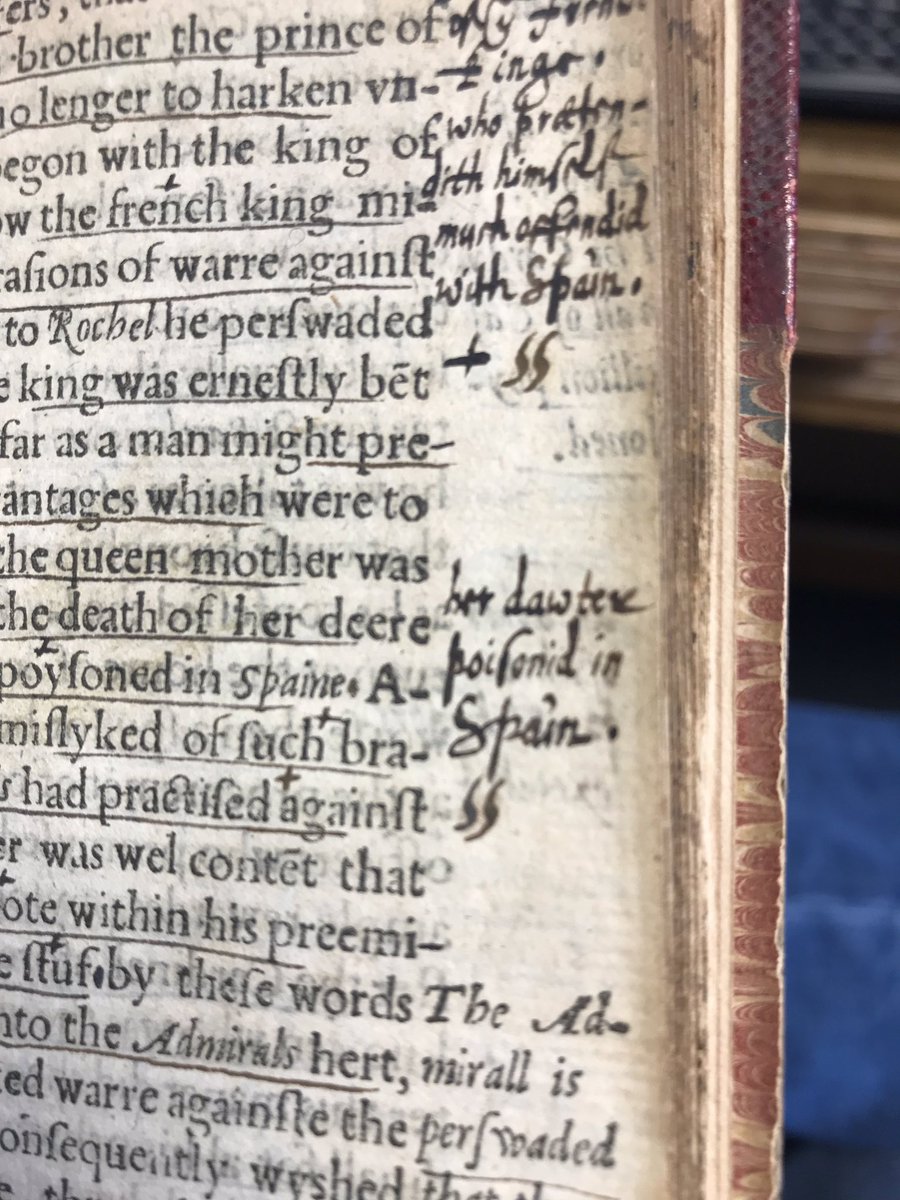 brother the prince of
no lenger to harken vn-
ings.
egon with the king of
who præten-
dith himself
ow the freñch king mi-
much offendid
rasions of warre againſt
with Spain.
to Rochel he perſwaded
e king was erneſtly bēt
+ SS
far as a man might pre-
antages which were to
the queen mother was
her dawter
the death of her deere
poisonid in
poyſoned in Spaine. A-
Spain.
miſlyked of ſuch bra-
s had practiſed againſt
SS
er was wel contēt that
ote within his preemi-
e ſtuf. by theſe words The Ad-
nto the Admirals hert, mirall is
ted warre againſte the perſwaded
onſequently wyshed that th